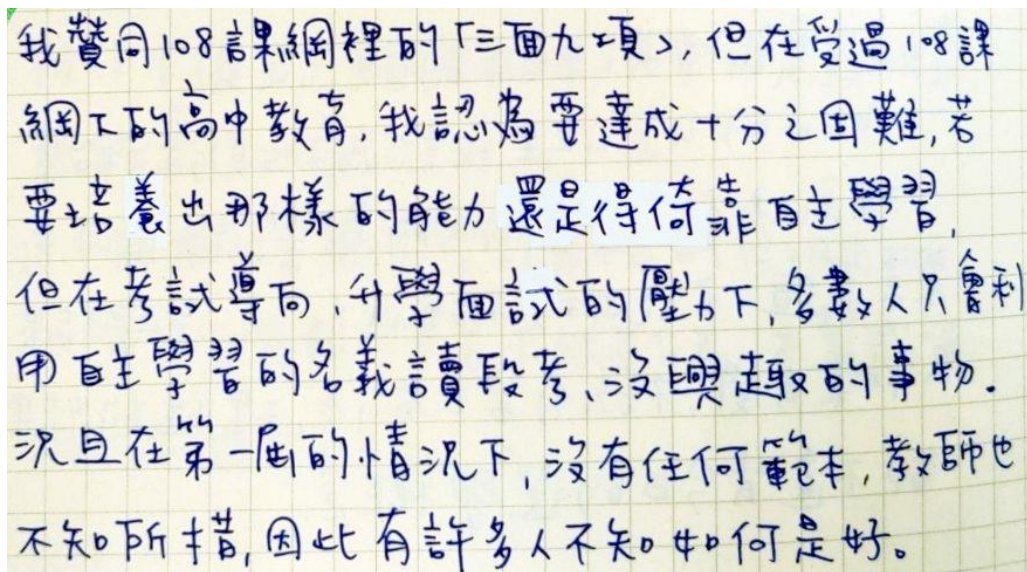 我贊同108課綱裡的「三面九項」，但在受過108課
綱下的高中教育，我認為要達成十分之困難，若
要培養出那樣的能力還是得倚靠自主學習，
但在考試導向、升學面試的壓力下，多數人只會利
用自主學習的名義讀段考、沒興趣的事物。
況且在第一屆的情況下，沒有任何範本，教師也
不知所措，因此有許多人不知如何是好。